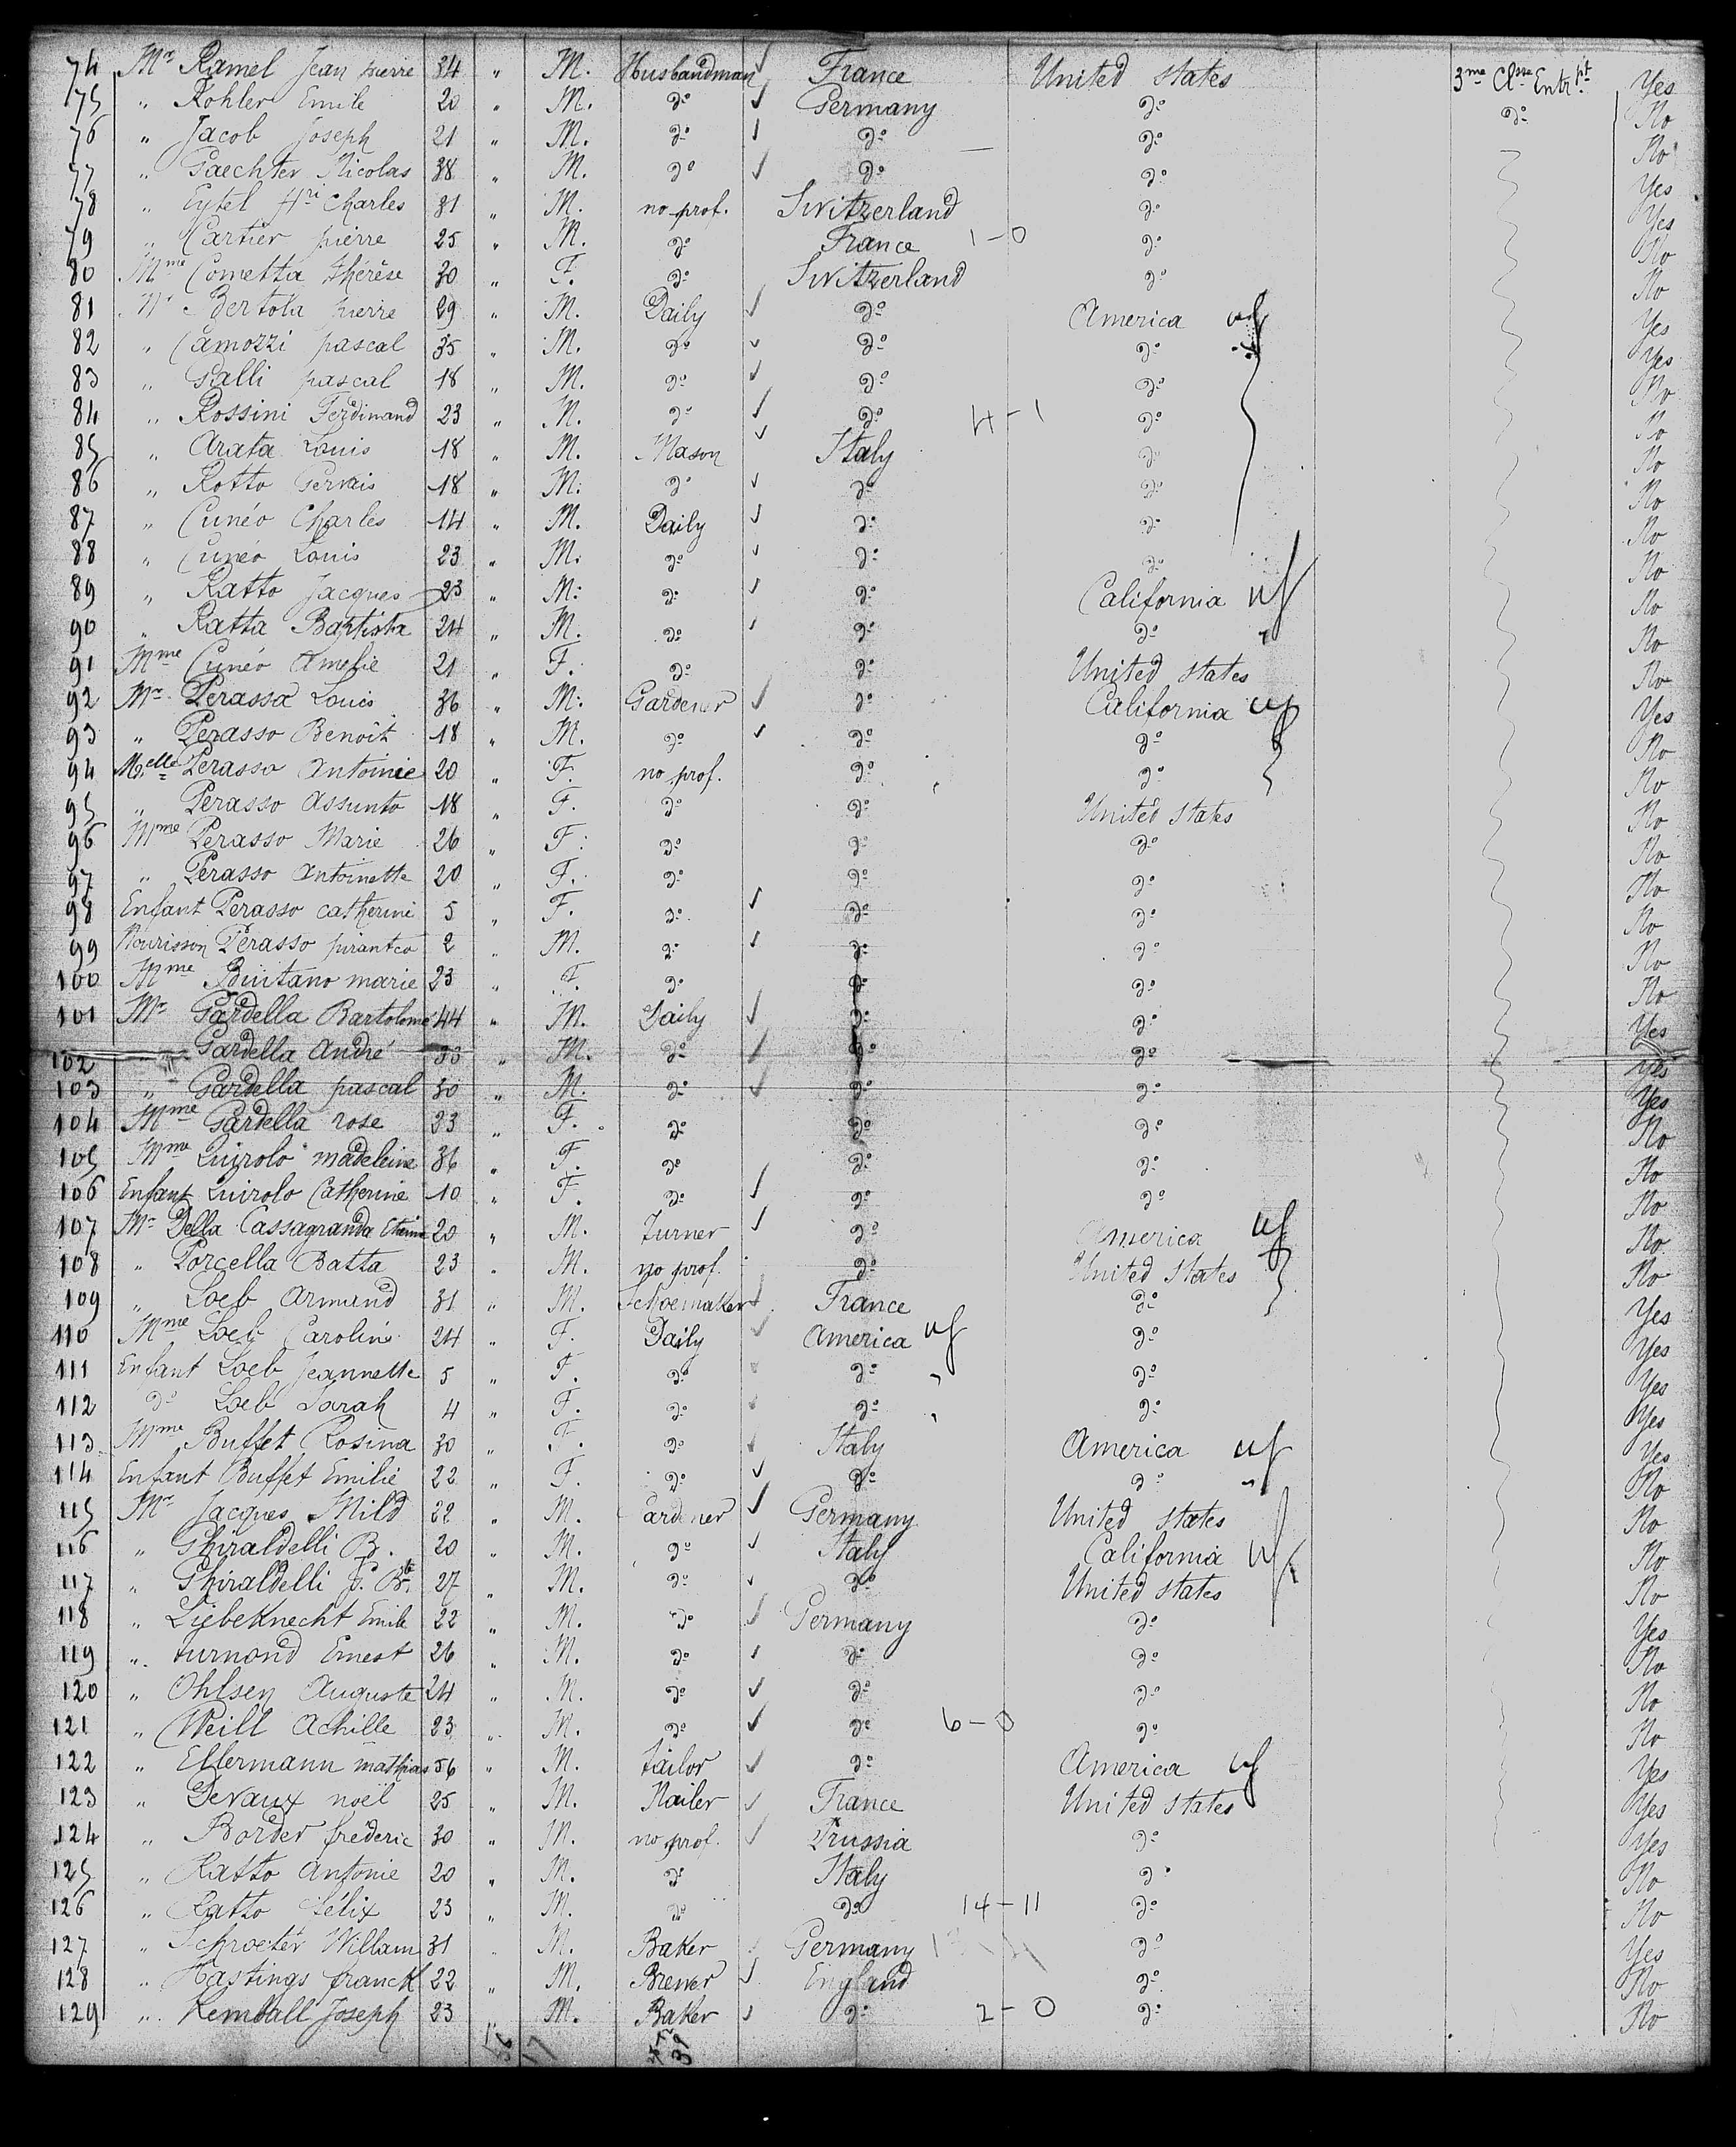 74 Mr Ramel Jean pierre 34 " M. Husbandman France United states 3me Clsse Entrpt Yes
75 " Kohler Emile 20 " M. do Germany do do No
76 " Jacob Joseph 21 " M. do do do No
77 " Gaechter Nicolas 38 " M. do do do Yes
78 " Eytel Hri Charles 31 " M. no prof. Switzerland do Yes
79 " Cartier pierre 25 " M. do France 1-0 do No
80 Mme Cometta thérèse 30 " F. do Switzerland do No
81 Mr Bertola pierre 29 " M. Daily do America Yes
82 " Camozzi pascal 35 " M. do do do Yes
83 " Galli pascal 18 " M. do do do No
84 " Rossini Ferdinand 23 " M. do do 4-1 do No
85 " Arata Louis 18 " M. Mason Italy do No
86 " Rotto Gervais 18 " M. do do do No
87 " Cunéo Charles 14 " M. Daily do do No
88 " Cunéo Louis 23 " M. do do do No
89 " Ratto Jacques 23 " M. do do California No
90 " Ratta Baptista 24 " M. do do do No
91 Mme Cunéo Amelie 21 " F. do do United states No
92 Mr Perassa Louis 36 " M. Gardener do California Yes
93 " Perasso Benoît 18 " M. do do do No
94 Melle Perasso Antoinie 20 " F. no prof. do do No
95 " Perasso Assunto 18 " F. do do United states No
96 Mme Perasso Marie 26 " F. do do do No
97 " Perasso Antoinette 20 " F. do do do No
98 Enfant Perasso catherine 5 " F. do do do No
99 Nourisson Perasso 2 " M. do do do No
100 Mme marie 23 " F. do do do No
101 Mr Gardella Bartolomé 44 " M. Daily do do Yes
102 " Gardella André 30 " M. do do do Yes
103 " Gardella pascal 30 " M. do do do Yes
104 Mme Gardella rose 33 " F. do do do No
105 Mme Quirolo madeleine 36 " F. do do do No
106 Enfant Quirolo Catherine 10 " F. do do do No
107 Mr Della Cassagranda 20 " M. Turner do America No
108 " Porcella Batta 23 " M. no prof. do United States No
109 " Loeb Armand 31 " M. Schoemaker France do Yes
110 Mme Loeb Caroline 24 " F. Daily America do Yes
111 Enfant Loeb Jeannette 5 " F. do do do Yes
112 do Loeb Sarah 4 " F. do do do Yes
113 Mme Buffet Rosina 30 " F. do Italy America Yes
114 Enfant Buffet Emilie 22 " F. do do do No
115 Mr Jacques Mild 22 " M. Gardener Germany United states No
116 " Ghiraldelli B. 20 " M. do Italy California No
117 " Ghiraldelli J. Bte 27 " M. do do United states No
118 " Liebeknecht Emile 22 " M. do Germany do Yes
119 " turnond Ernest 26 " M. do do do No
120 " Ohlsen Auguste 24 " M. do do do No
121 " Weill Achille 23 " M. do do 6-0 do No
122 " Ellermann mathias 56 " M. tailor do America Yes
123 " Devaux noël 25 " M. Nailer France United states Yes
124 " Border fréderic 30 " M. no prof. Prussia do Yes
125 " Ratto Antonie 20 " M. do Italy do No
126 " Ratto Félix 23 " M. do do 14-11 do No
127 " Schroeter Willam 31 " M. Baker Germany do Yes
128 " Hastings franck 22 " M. Brewer England do No
129 " Kemball Joseph 23 M. Baker do 2-0 do No
17 39